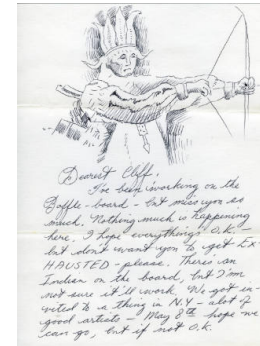 Dearest Cliff,
I've been working on the
Boffle-board - but miss you so
much. Nothing much is happening
here. I hope everything's O.K. -
but don't want you to get EX
HAUSTED - please. There's an
Indian on the board, but I'm
not sure it'll work. We got in-
vited to a thing in N.Y - alot of
good artists - May 8th hope we
can go, but if not O.K.